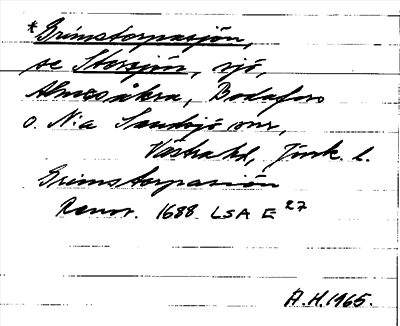 *Grimstorpasjön,
se Storsjön, sjö,
Almesåkra, Bodafors
o. N:a Sandsjö snr,
Västra hd, Jönk. l.
Grimstorpasiön
Renov. 1688 LSA E 27
A.H. 1965.